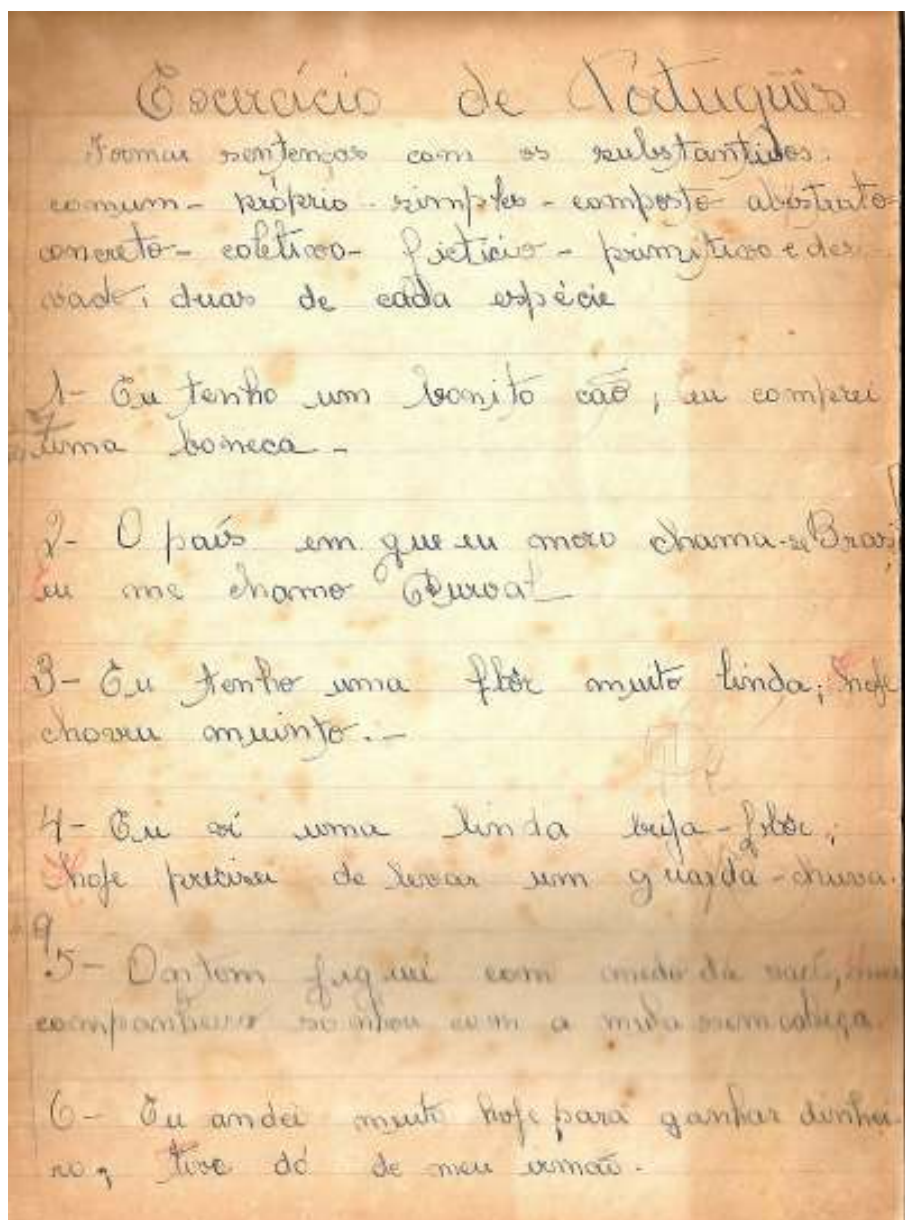 Exercício de Português
Formar sentenças com os substantivos:
comum - próprio - simples - composto abistrato
concreto - coletivo - fictício - primitivo e deri-
vado; duas de cada espécie
1- Eu tenho um bonito cão; eu comprei
uma boneca -
2- O país em que eu moro chama-se Brasil
eu me chamo Durval
3- Eu tenho uma flôr muito linda; hoje
choveu muinto. -
4- Eu vi uma linda beija-flôr;
hoje precisei de levar um guarda-chuva.
5- Ontom fiquei com medo da saci, meu
companheiro sonhou com a mula sem cabeça
6- Eu andei muito hoje para ganhar dinhei-
ro, tive dó de meu irmão.